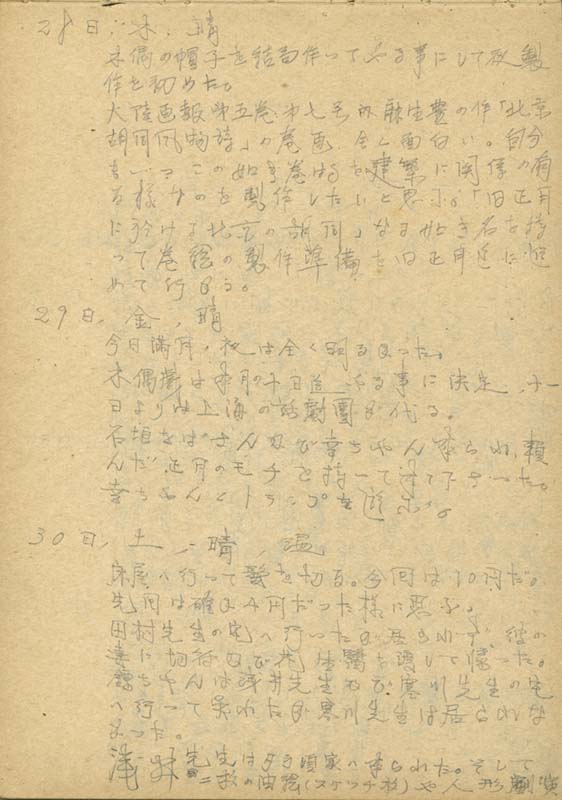 28日、木、晴
木偶の帽子を結局作ってやる事にして夜製
作を初めた。
大陸画報第五巻第七号所麻生豊の作「北京
胡同風物詩」の巻画、全く面白い。自分
も一つこの如き巻物を建築に関係の有
る様なのを製作したいと思ふ。「旧正月
に於ける北京の胡同」なる北き名を持
って巻絵の製作準備を旧正月迄に進
めて行かう。
29日、金、晴
今日満月、夜は全く明るかった。
木偶 は 月の十日迄 やる事に決定、十一
日よりは上海の話劇團が代る。
石垣をばさん及び幸ちやん来られ、頼
んだ正月のモチを持って来て下さった。
幸ちやんとトランプを遊ぶ。
30日、土、晴、温
床屋へ行って髪を切る。今回は10円だ。
先回は確か4円だった様に思ふ。
田村先生の宅へ行ったが居られず、彼の
妻に 及び 生 を渡して帰った。
ちやんは 井先生及び寒川先生の宅
へ行って呉れたが寒川先生は居られな
かった。
先生は夕頃家へ来られた。そして
二枚の油絵(スケッチ板)や人形劇